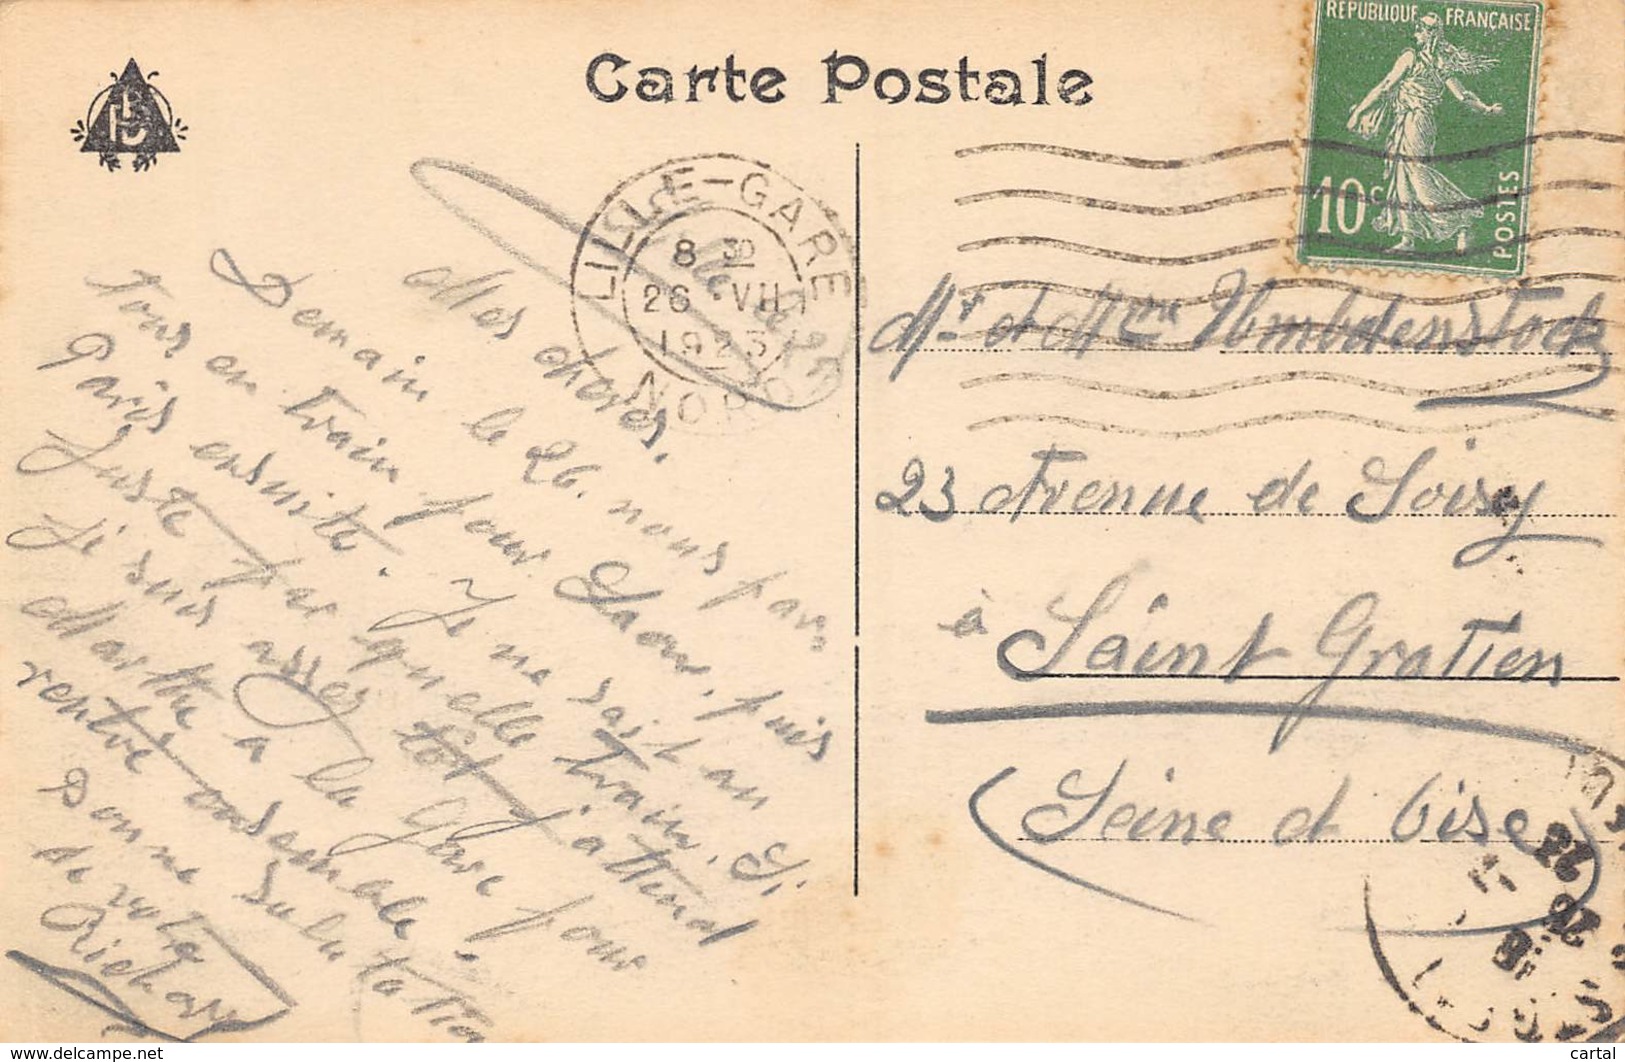 Carte Postale
REPUBLIQUE FRANÇAISE
10c
POSTES
LILLE-GARE
8 30
26 VII
1923
NORD
Mes chères,
Demain le 26. nous part
tous en train pour Laon, puis
Paris ensuite. Je ne sait au
Juste par quelle train. Si
Je suis assez tôt j'attend
Marthe a la Gare pour
rentré ensemble.
Bonne Salutation
de vote
Richard
Mr et Mme Umbdenstock
23 Avenue de Soisy
à Saint Gratien
Seine et Oise
www.delcampe.net
cartal